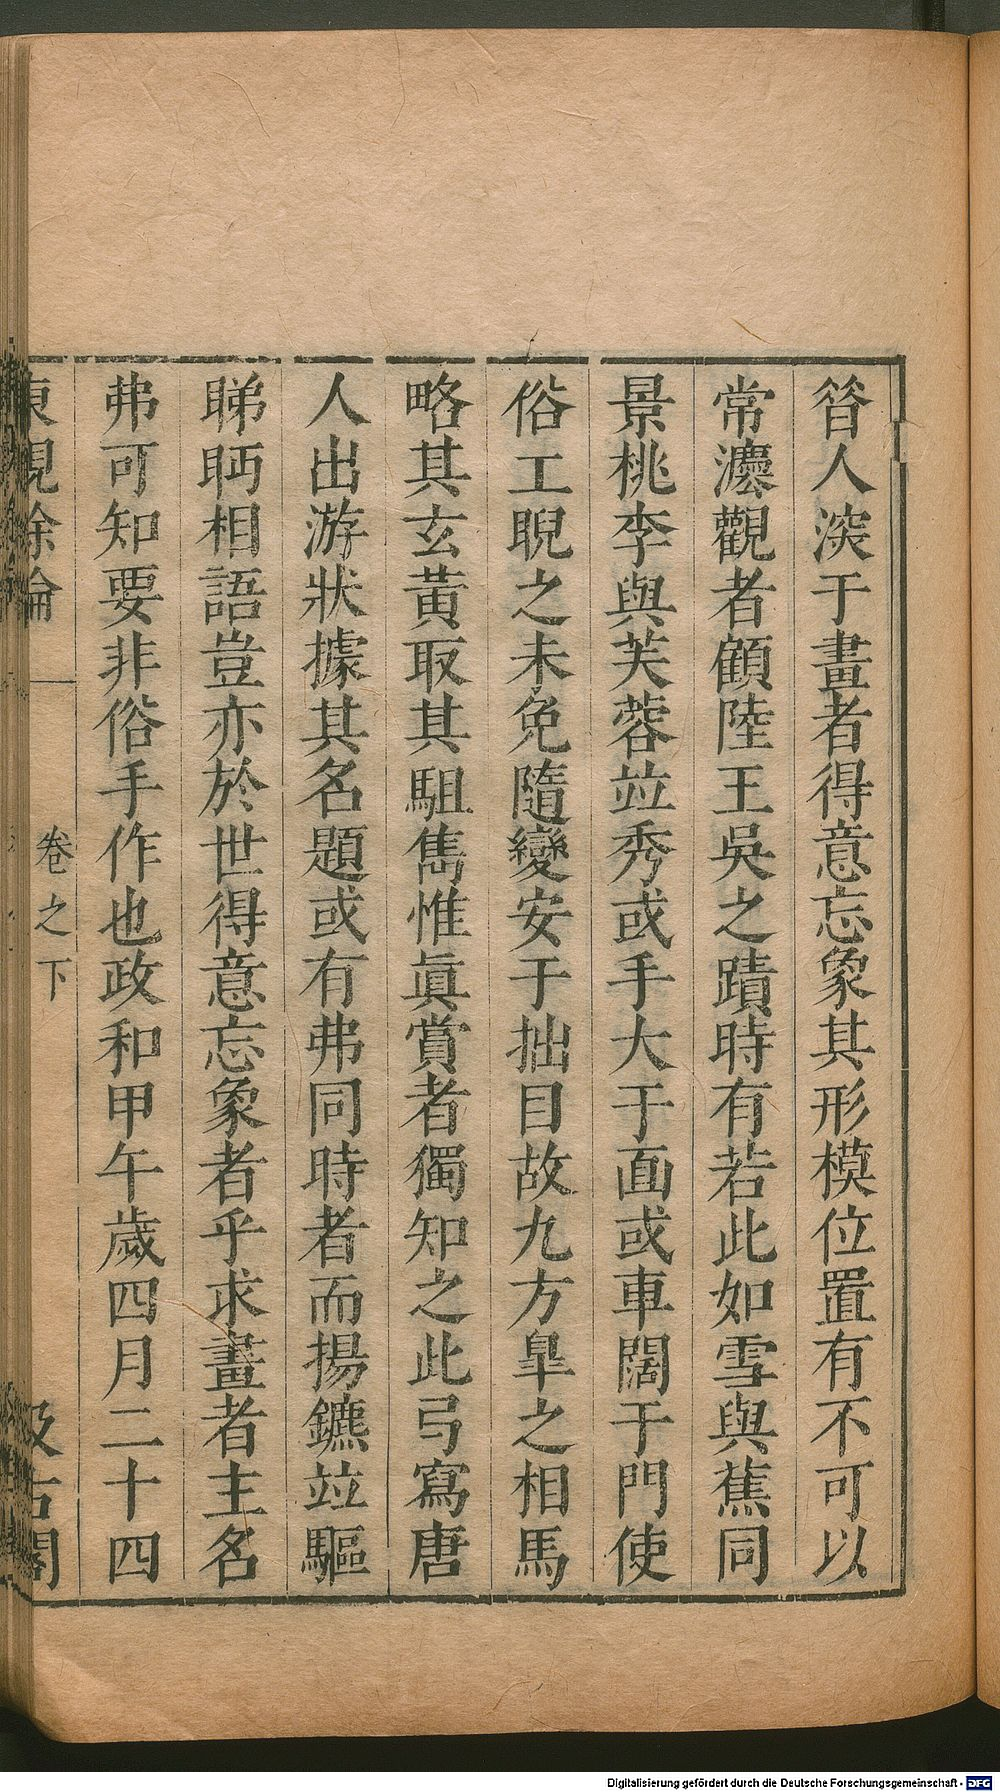 昝人深于畫者得意忘象其形模位置有不可以
常灋觀者顧陸王吳之蹟時有若此如雪與蕉同
景桃李與芙蓉竝秀或手大于面或車闊于門使
俗工睨之未免隨變安于拙目故九方臯之相馬
略其玄黃取其駔雋惟眞賞者獨知之此弓寫唐
人出游狀據其名題或有弗同時者而揚鑣竝驅
睇眄相語豈亦於世得意忘象者乎求畫者主名
弗可知要非俗手作也政和甲午歲四月二十四
東觀餘論
卷之下
汲古閣
Digitalisierung gefördert durch die Deutsche Forschungsgemeinschaft - DFG